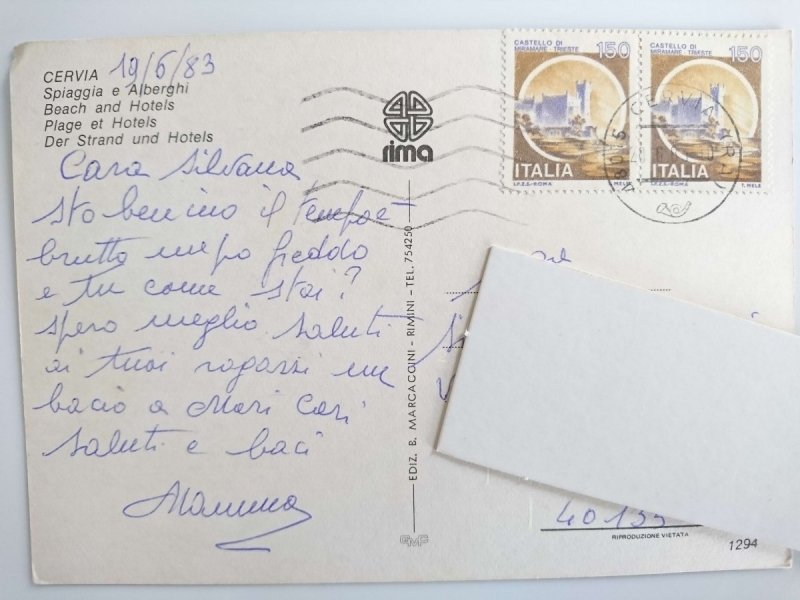 CERVIA 19/6/83
Spiaggia e Alberghi
Beach and Hotels
Plage et Hotels
Der Strand und Hotels
rima
CASTELLO DI
MIRAMARE - TRIESTE
150
ITALIA
I.P.Z.S.-ROMA T. MELE
CASTELLO DI
MIRAMARE - TRIESTE
150
ITALIA
I.P.Z.S.-ROMA T. MELE
CERVIA
Cara Silvana
sto benino il tempo è
brutto un po freddo
e tu come stai?
spero meglio saluti
ai tuoi ragazzi un
bacio a Mari
saluti e baci
Mamma
EDIZ. B. MARCACCINI - RIMINI - TEL. 754250
40133
RIPRODUZIONE VIETATA
1294